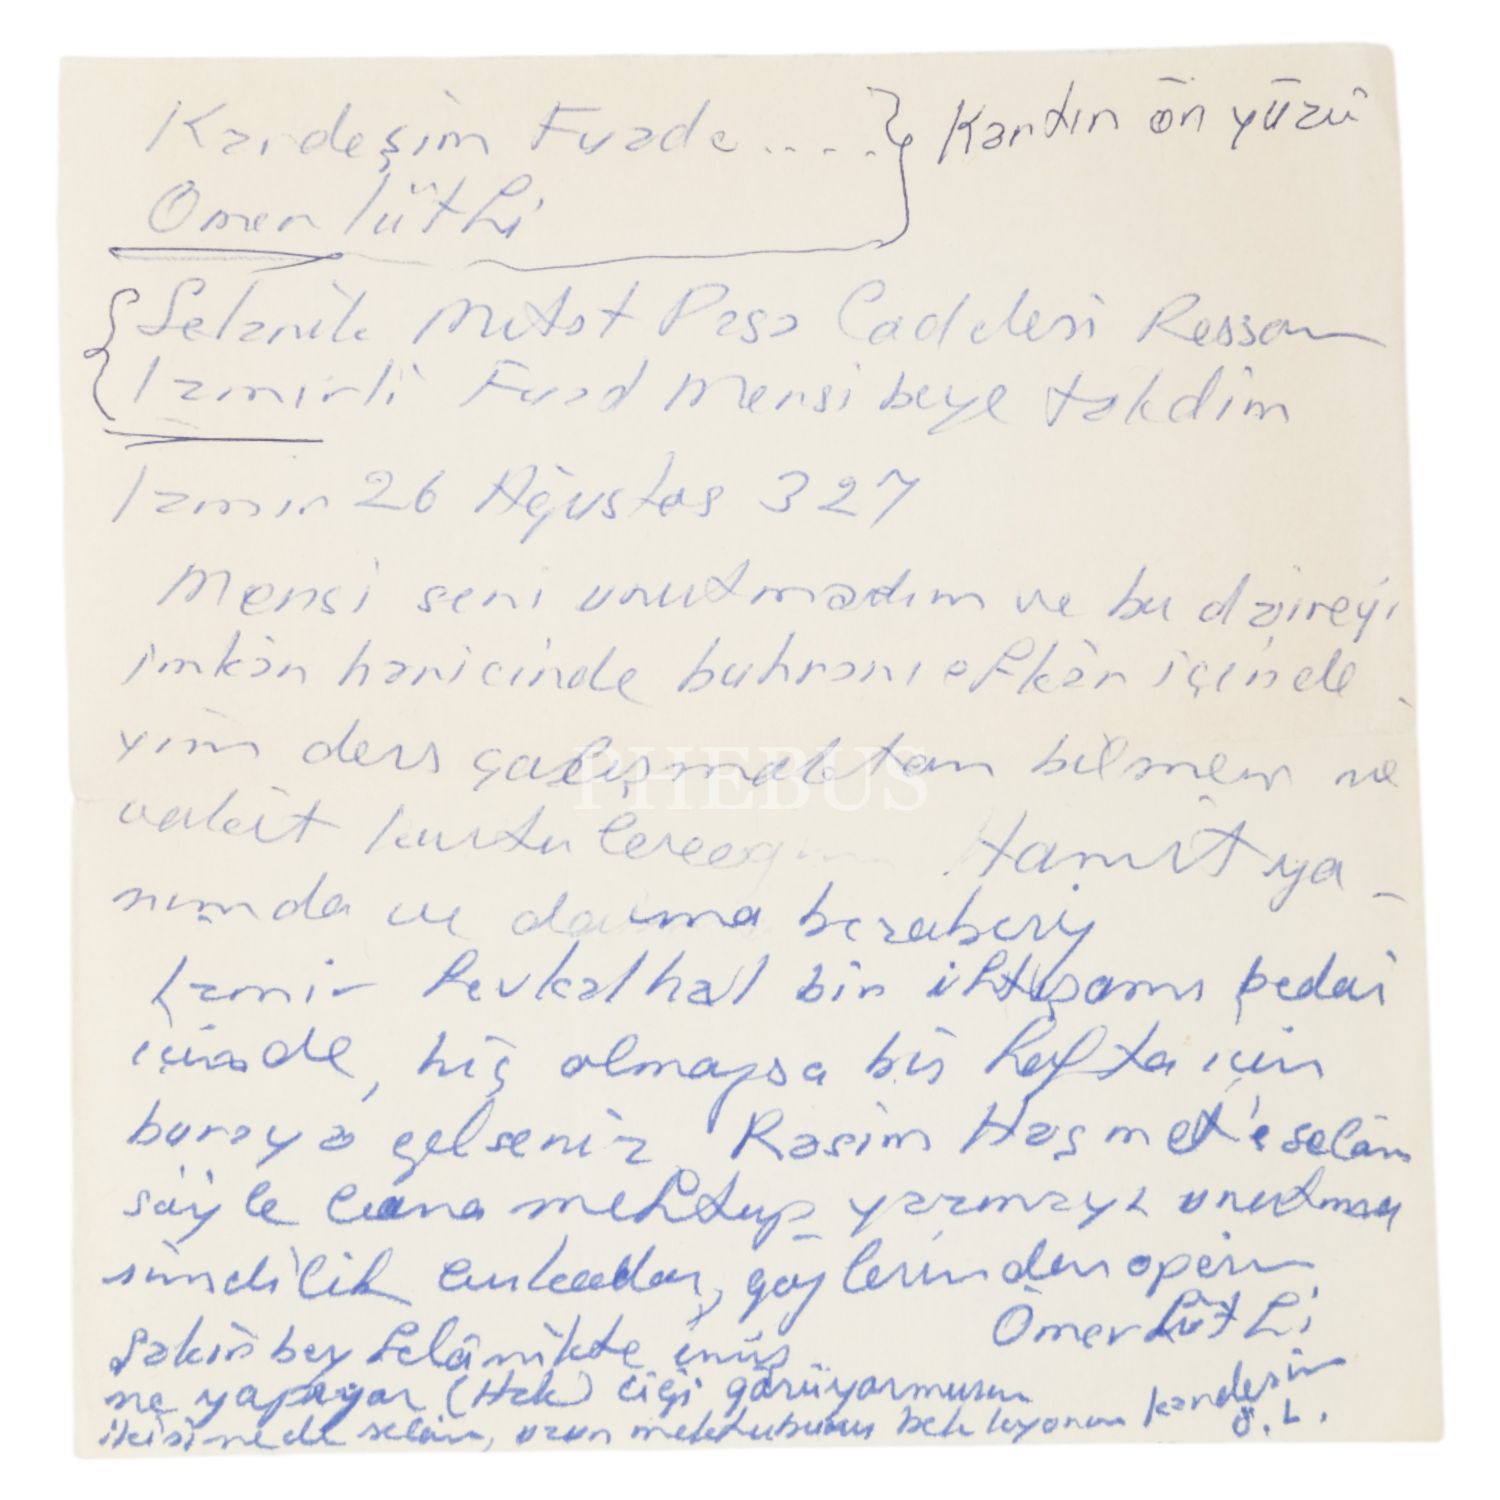 Kardeşim Fuada ..... Kartın ön yüzü
Ömer lütfi
Selanik Mitat Paşa Caddesi Ressam
İzmirli Fuad Mensi beye takdim
İzmir 26 Ağustos 327
Mensi seni unutmadım ve bu daireyi
imkân haricinde buhranı efkâr içinde
yim ders çalışmaktan bilmem ne
vakit Hamit ya-
nımda ve daima beraberiz
İzmir fevkalhal bir ihtişamı bedai
içinde, hiç olmazsa bir hafta için
buraya gelseniz Rasim Haşmet'e selâm
söyle bana mektup yazmayı unutmasın
şimdilik bukadar, gözlerinden öperim
Ömer Lütfi
Şakir bey Selânikte imiş
ne yapıyor (Hak) görüyormusun
kardeşin
ikisinede selâm, uzun mektubunu bekliyorum
Ö. L.
PHEBUS